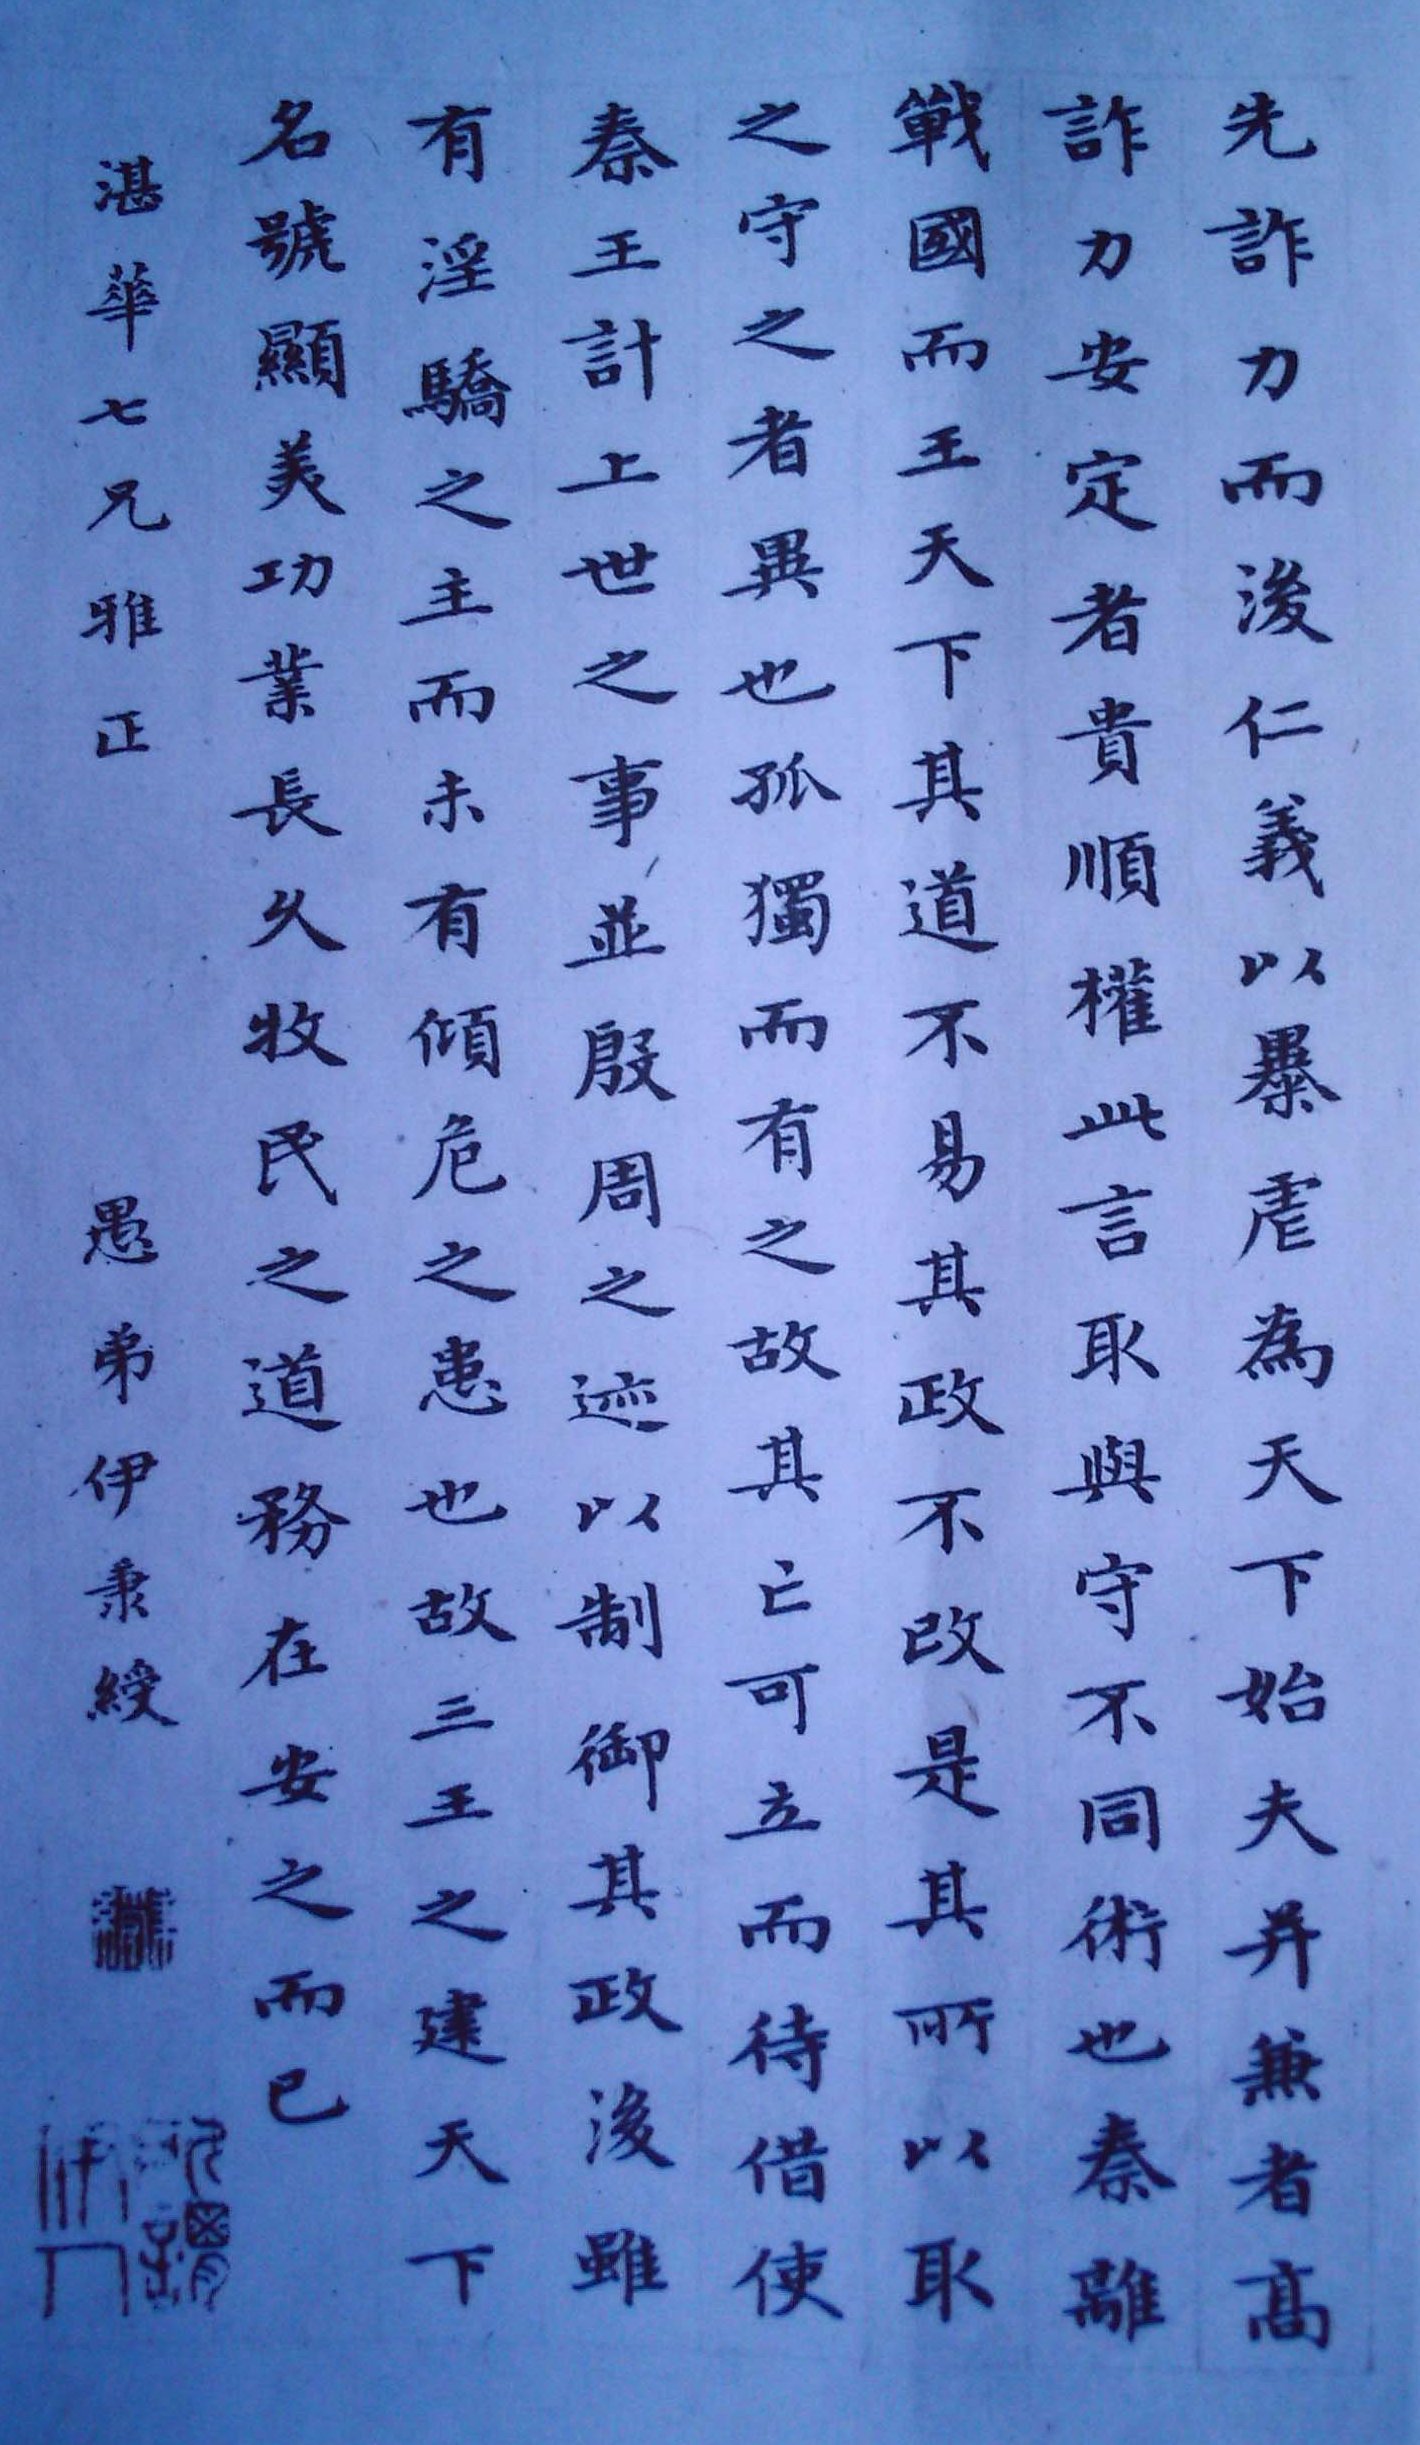 先詐力而後仁義以暴虐為天下始夫并兼者高
詐力安定者貴順權此言取與守不同術也秦離
戰國而王天下其道不易其政不改是其所以取
之守之者異也孤獨而有之故其亡可立而待借使
秦王計上世之事並殷周之迹以制御其政後雖
有淫驕之主而未有傾危之患也故三王之建天下
名號顯美功業長久牧民之道務在安之而已
湛華七兄雅正　愚弟伊秉綬